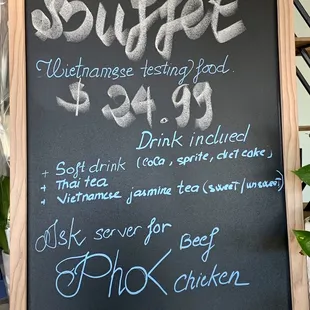 Buffet
Vietnamese testing food.
$ 24.99
Drink inclued
+ Soft drink (coca, sprite, diet cake)
+ Thai tea
+ Vietnamese jasmine tea (sweet/unsweet)
Ask server for
Pho < Beef
chicken